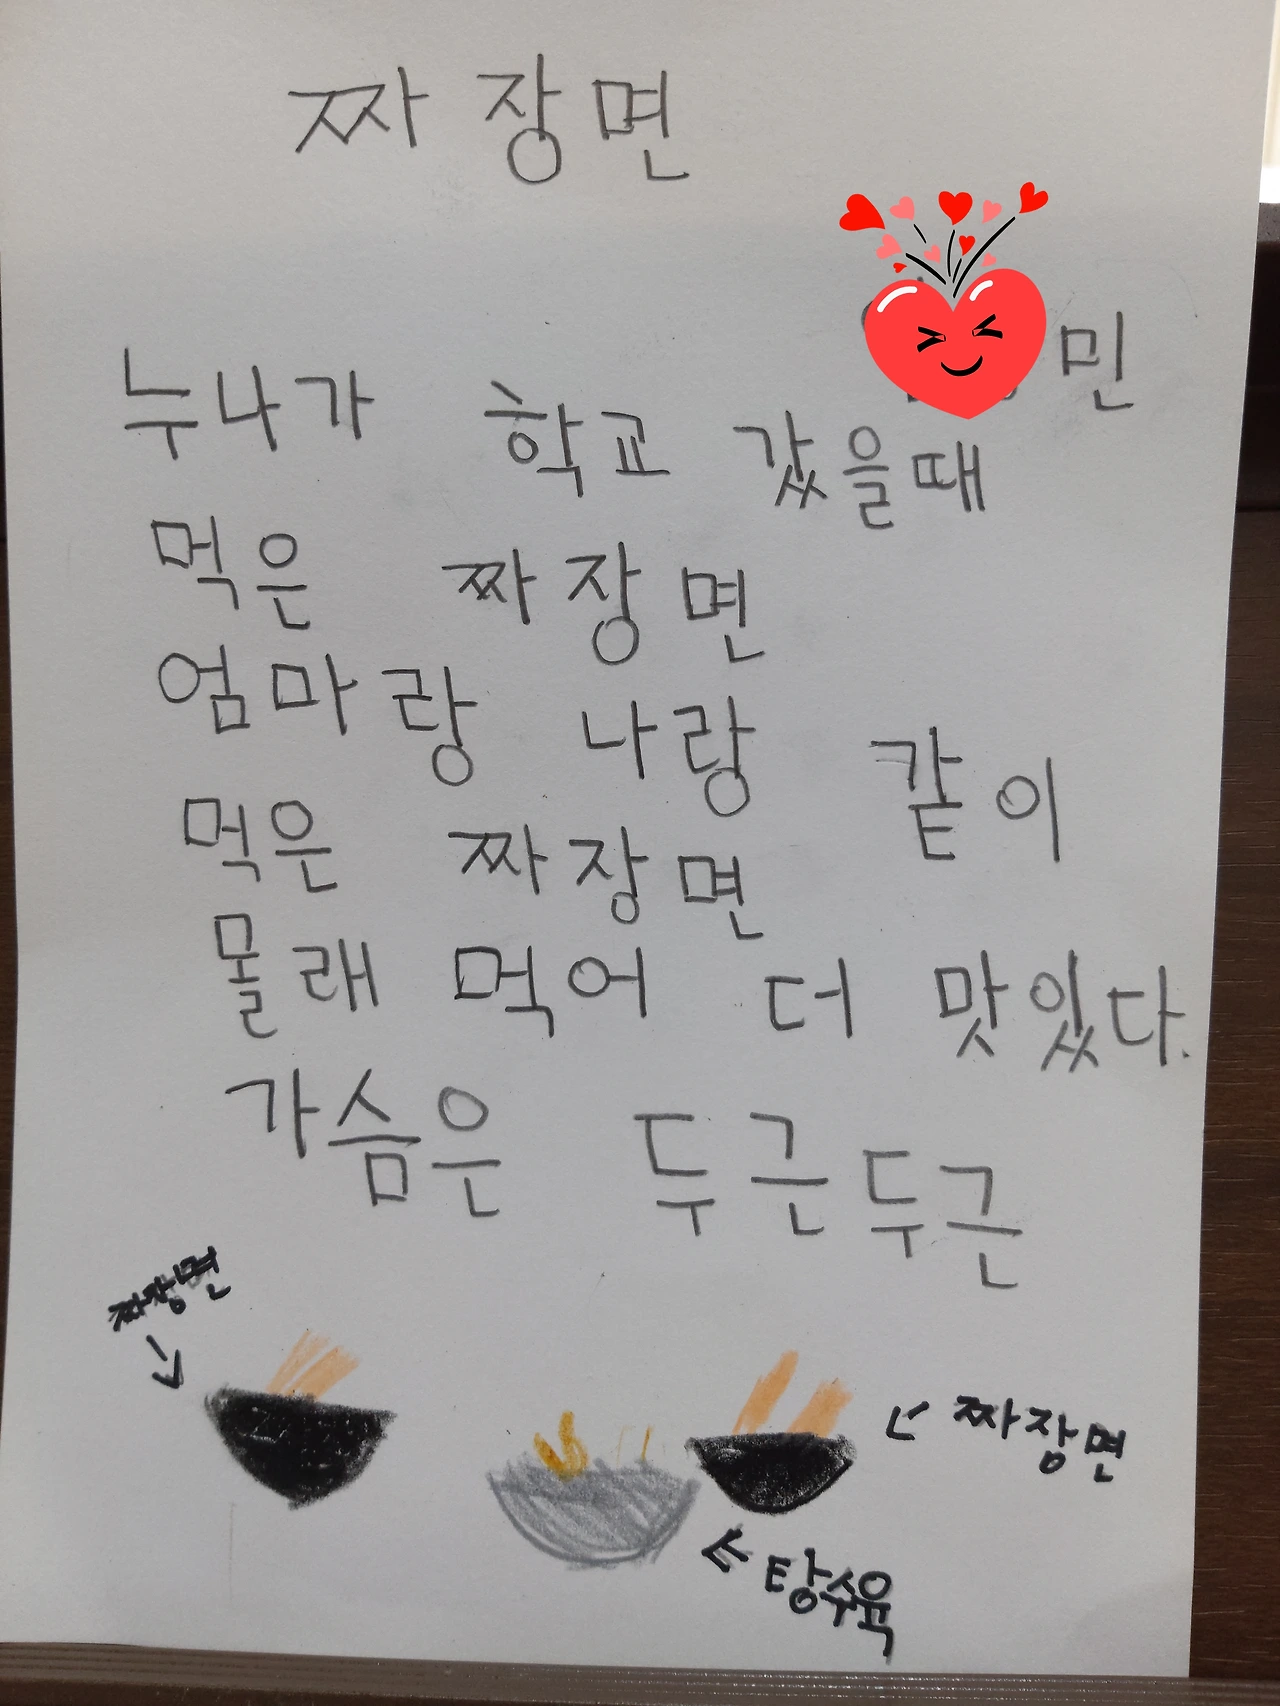 짜장면
민
누나가 학교 갔을때
먹은 짜장면
엄마랑 나랑 같이
먹은 짜장면
몰래 먹어 더 맛있다.
가슴은 두근두근
짜장면
짜장면
탕수육